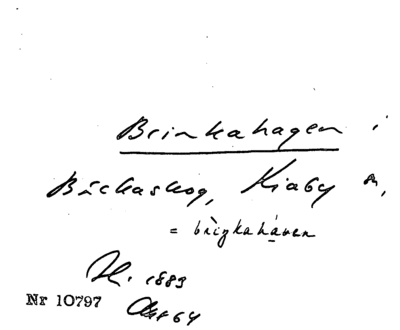 Brinkahagen i
Bäckaskog, Kiaby sn,
= brìŋkahá̱ven
H. 1883
Nr 10797